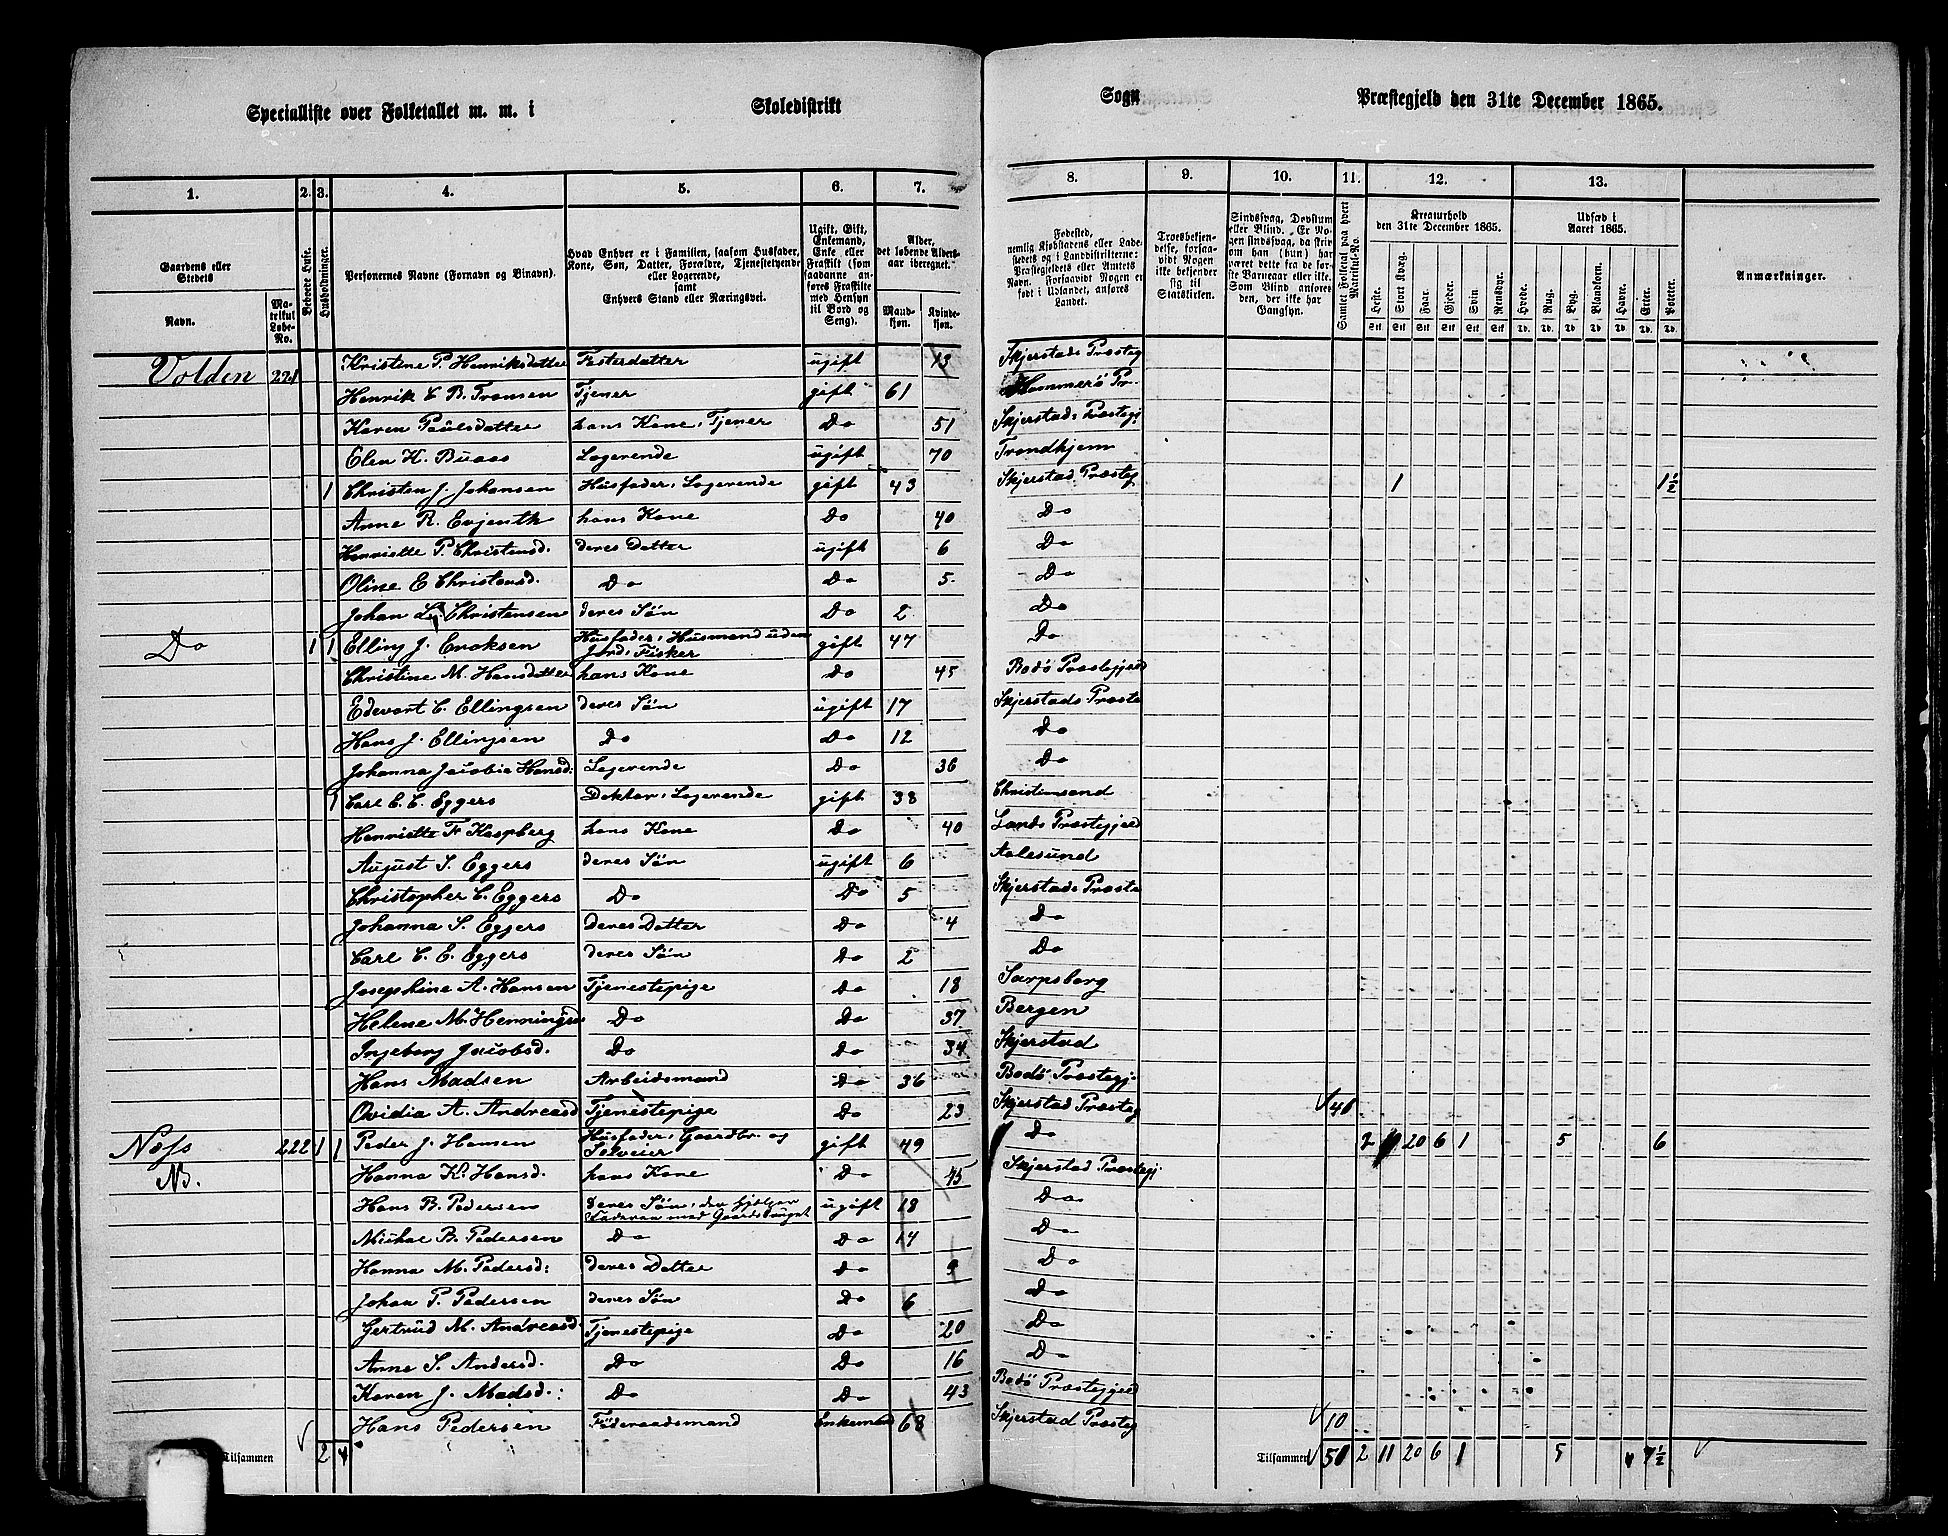 Specialliste over Folketallet m. m. i Skoledistrikt Sogn Præstegjeld den 31te December 1865.
1. 2. 3. 4. 5. 6. 7. 8. 9. 10. 11. 12. 13.
Gaardens eller Stedets Navn. Matrikul Løbe-No. Beboede Huse. Husholdninger. Personernes Navne (Fornavn og Binavn). Hvad Enhver er i Familien, saasom Husfader, Kone, Søn, Datter, Forældre, Tjenestetyende eller Logerende, samt Enhvers Stand eller Næringsvei. Ugift, Gift, Enkemand, Enke eller Fraskilt (som saadanne anføres Fraskilte med Hensyn til Bord og Seng). Alder, det løbende Aldersaar iberegnet. Mandkjøn. Kvindekjøn.
Fødested, nemlig Kjøbstadens eller Ladestedets og i Landdistrikterne: Præstegjeldets eller Amtets Navn. Forsaavidt Nogen er født i Udlandet, anføres Landet. Troesbekjendelse, forsaavidt Nogen ikke bekjender sig til Statskirken. Sindssvag, Døvstum eller Blind. Er Nogen sindssvag, da skrives om han (hun) har været dette fra de første Barneaar eller ikke. Som Blind anføres den, der ikke har Gangsyn. Samlet Folketal paa hvert Matrikul-No. Kreaturhold den 31te December 1865. Heste. Stort Kvæg. Faar. Gjeder. Svin. Rensdyr. Udsæd i Aaret 1865. Hvede. Rug. Byg. Blandkorn. Havre. Erter. Poteter. Anmærkninger.
Volden 221 Kristine P. Henriksdatter Fosterdatter ugift 13 Skjerstads Præsteg
Henrik C B. Transen Tjener gift 61 Hammerø Pr.
Karen Paulsdatter hans Kone, Tjener Do 51 Skjerstads Præstegj
Elen K. Buaas Logerende ugift 70 Trondhjem
1 Christen J. Johansen Husfader, Logerende gift 43 Skjerstad Præsteg 1 1½
Anne R. Evjenth hans Kone Do 40 Do
Henriette P. Christensd. deres Datter ugift 6 Do
Oline E Christensd. Do Do 5 Do
Johan L. Christensen deres Søn Do 2 Do
Do 1 1 Elling J. Enoksen Husfader, Husmand uden Jord, Fisker gift 47 Do
Christine M. Hansdatter hans Kone Do 45 Bodø Præstegjeld
Edevart C. Ellingsen deres Søn ugift 17 Skjerstads Præste
Hans J. Ellingsen Do Do 12 Do
Johanna Jacobia Hansd: Logerende Do 36 Do
1 Carl E. C. Eggers Doktor, Logerende gift 38 Christiansand
Henriette F. Kaspberg hans Kone Do 40 Lands Præstegjeld
August S. Eggers deres Søn ugift 6 Aalesund
Christopher C. Eggers Do Do 5 Skjerstads Præste
Johanna S. Eggers deres Datter Do 4 Do
Carl C. E. Eggers deres Søn Do 2 Do
Josephine A. Hansen Tjenestepige Do 18 Sarpsborg
Helene M. Henningsd Do Do 37 Bergen
Ingeborg Jacobsd. Do Do 34 Skjerstad
Hans Madsen Arbeidsmand Do 36 Bodø Præstegj.
Ovidia A. Andreasd Tjenestepige Do 23 Skjerstad Præsteg
Næss 222 1 1 Peder J. Hansen Husfader, Gaardbr. og Selveier gift 49 Do 2 11 20 6 1 5 6
N. Hanna K. Hansd. hans Kone Do 45 Skjerstad Præstegj.
Hans B. Pedersen Deres Søn, der hjelper Faderen med Gaardsbruget ugift 18 Do
Michal B. Pedersen Do Do 14 Do
Hanna M. Pedersd: deres Datter Do 9 Do
Johan P. Pedersen deres Søn Do 6 Do
Gertrud M. Andreasd. Tjenestepige Do 20 Do
Anne S. Andersd. Do Do 16 Do
Karen J. Madsd.: Do Do 43 Bodø Præstegjeld
Hans Pedersen Føderaadsmand Enkemand 68 Skjerstad Præsteg 10
Tilsammen 2 4 Tilsammen 50 2 11 20 6 1 5 7½